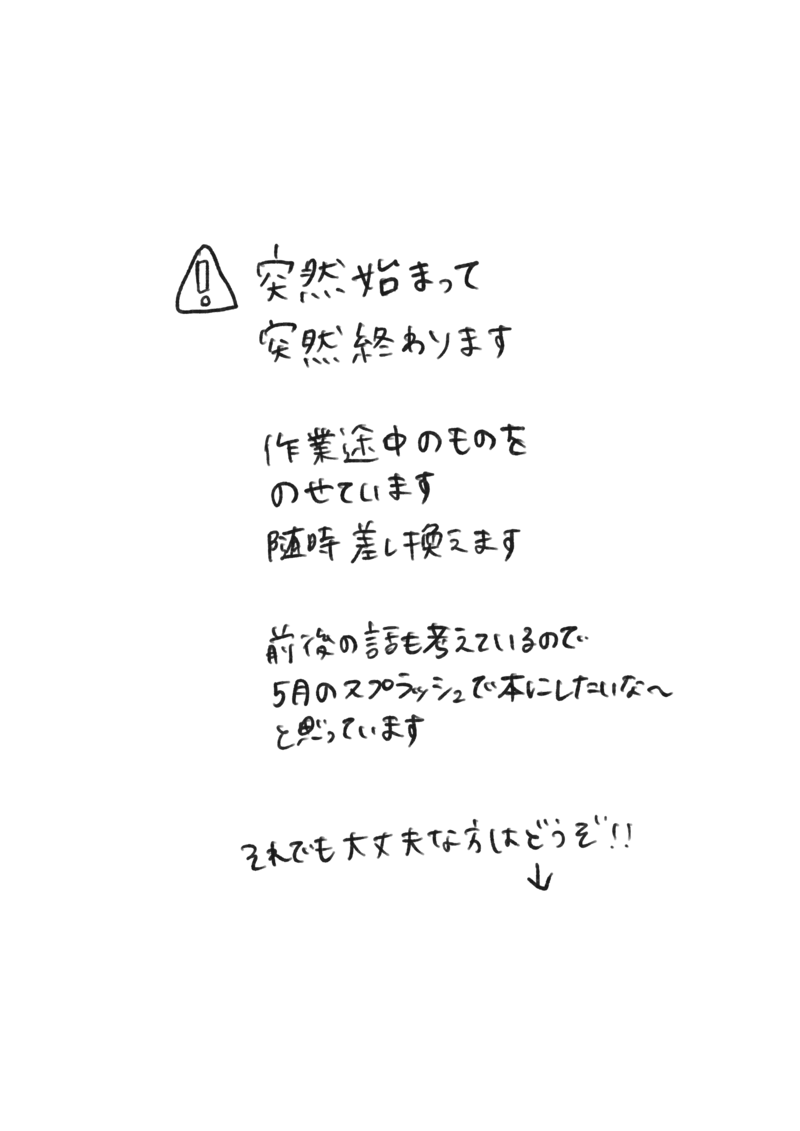 突然始まって
突然終わります
作業途中のものを
のせています
随時差し換えます
前後の話も考えているので
5月のスプラッシュで本にしたいな〜
と思っています
それでも大丈夫な方はどうぞ!!
↓